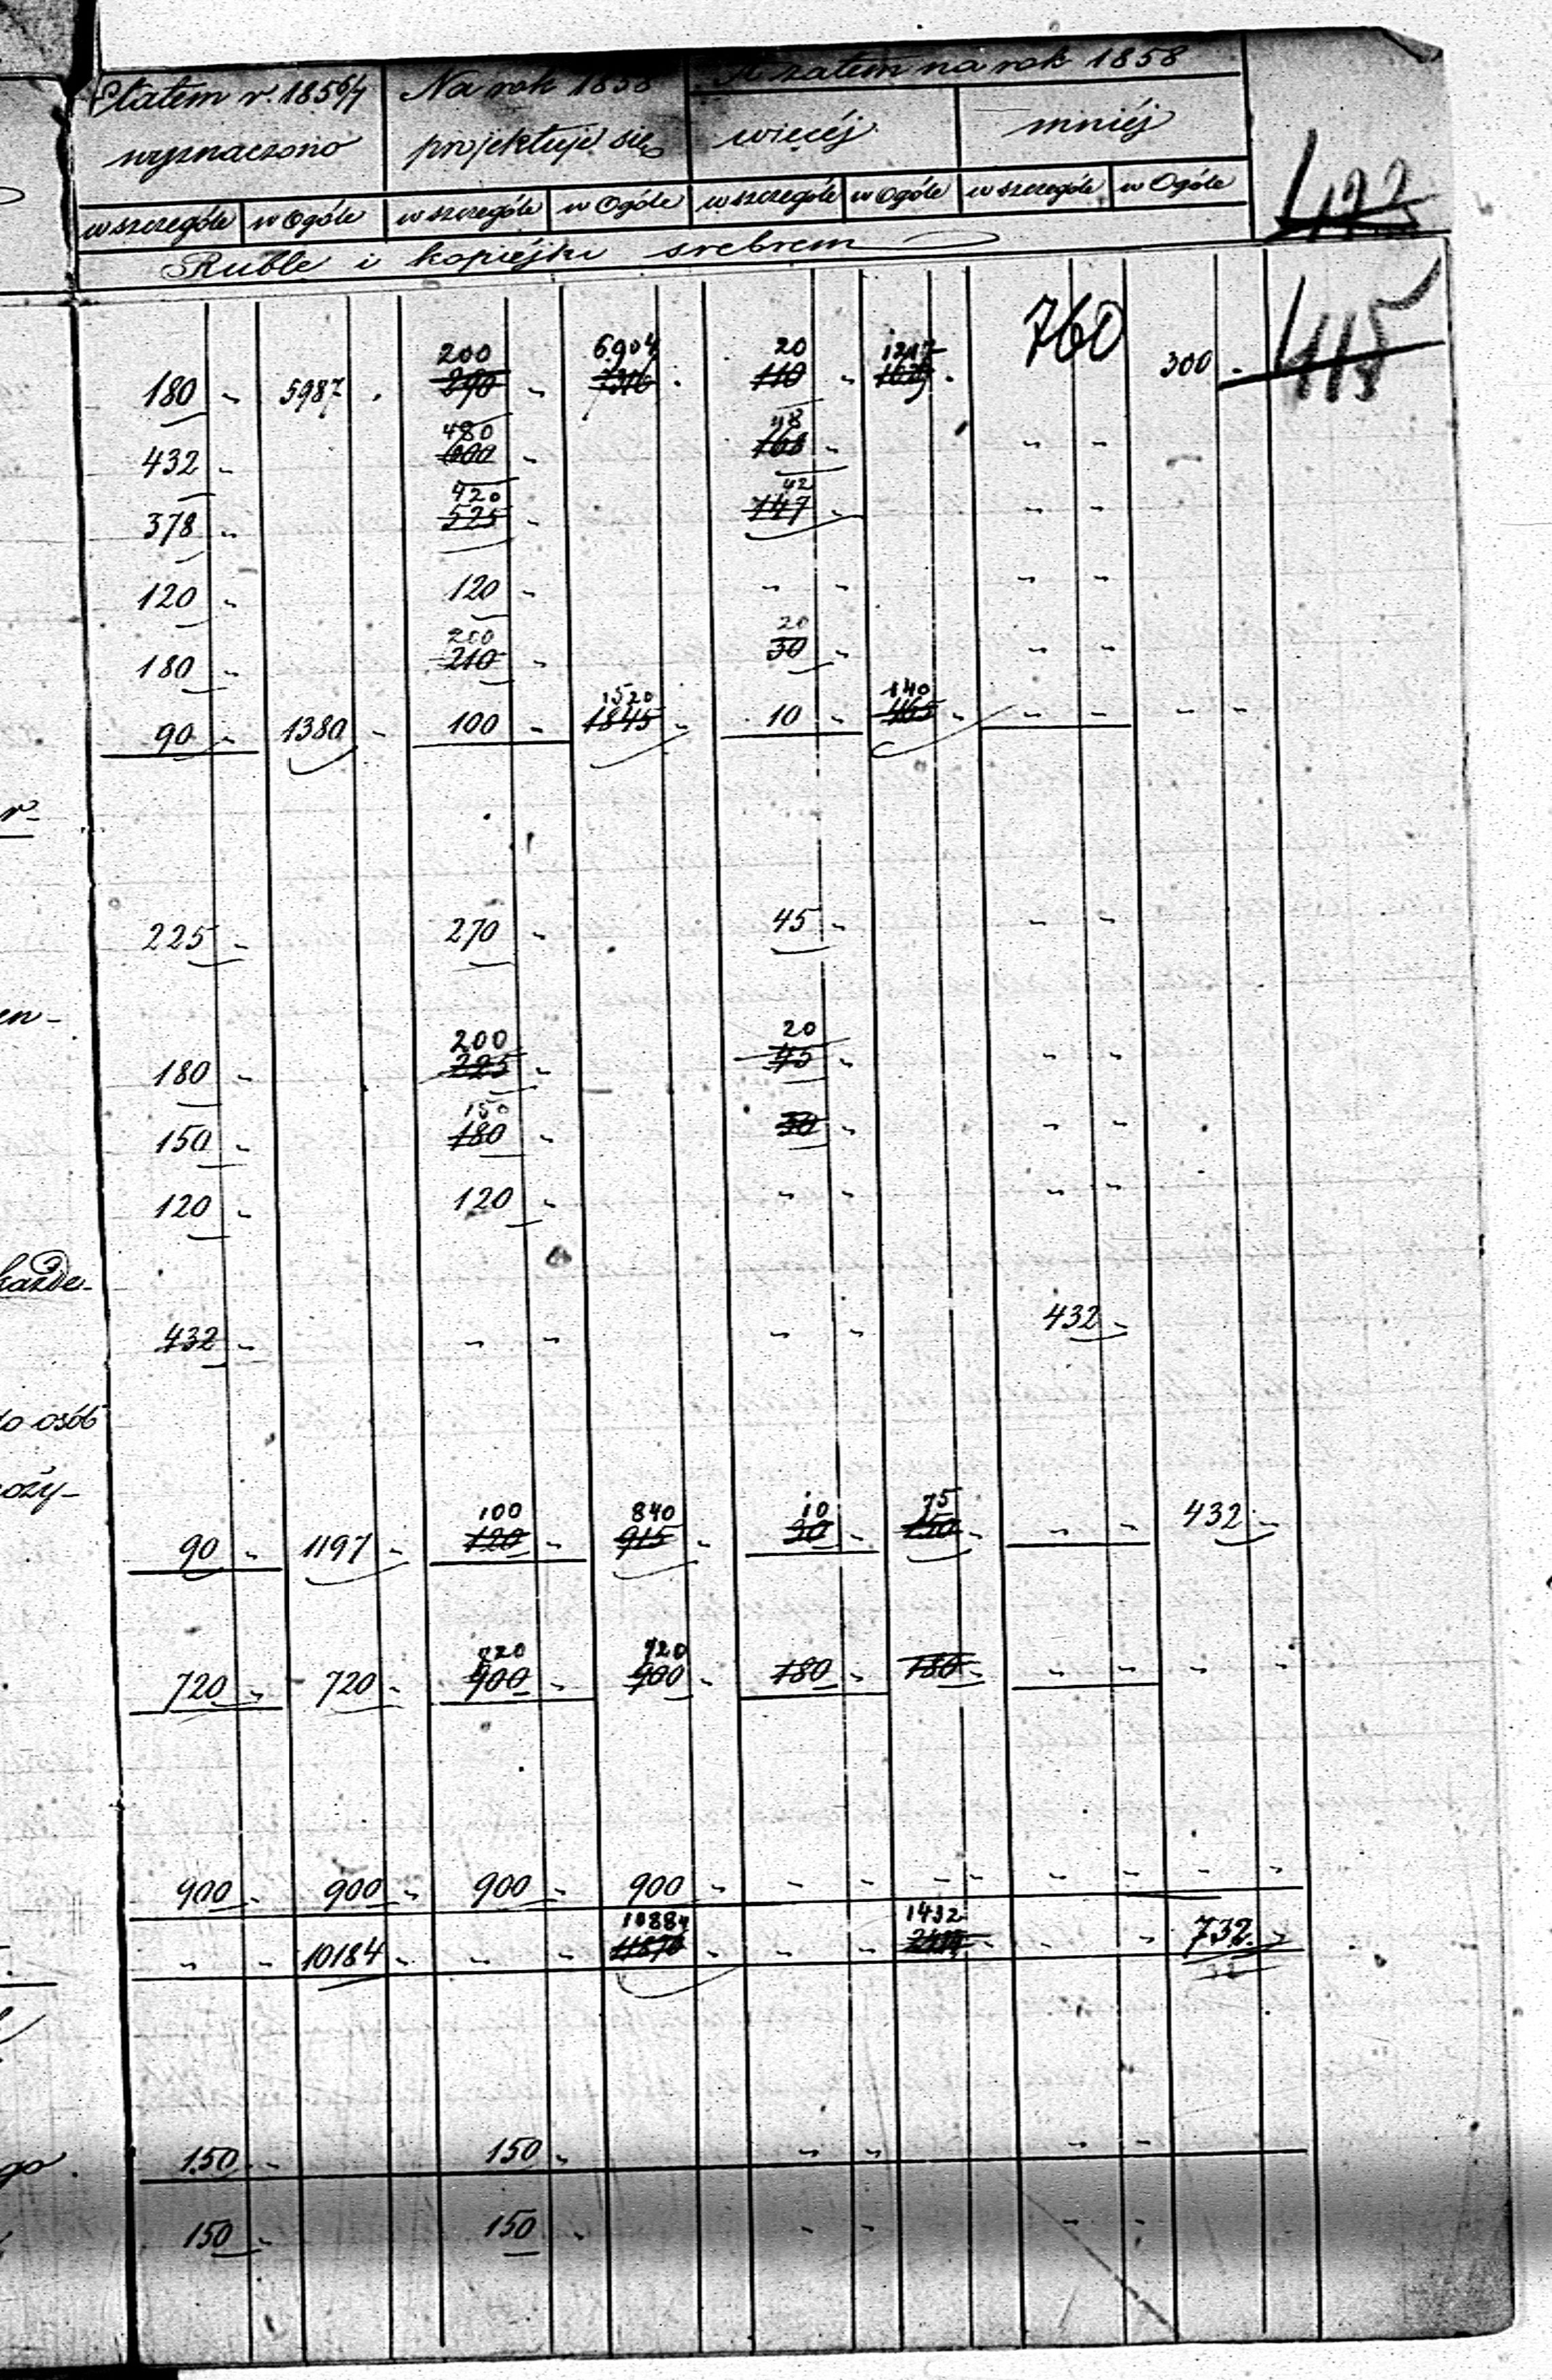 Etatem r. 1856/7 Na rok 1858 A zatem na rok 1858
wyznaczono projektuje się więcéj mniéj
w szczególe w Ogóle w szczególe w Ogóle w szczególe w Ogóle w szczególe w Ogóle
Ruble i kopiéjki srebrem
422
760
415
200 6904 20 1217
180 " 5987 . 290 " 7316 . 110 " . 300 "
480 48
432 " 600 " 168 " " "
420 42
378 " 525 " 147 " " "
120 " 120 " " " " "
200 20
180 " 210 " 30 " " "
1520 140
90 " 1380 " 100 " 1845 " 10 " 465 " " " " "
r
225 " 270 " 45 " " "
en-
200 20
180 " 225 " 45 " " "
150
150 " 180 " 30 " " "
120 " 120 " " " " "
każde-
432 " " " " " 432 "
do osób
oży-
100 840 10 75
90 " 1197 " 120 " 915 " 30 " 150 " " " 432 "
720 720
720 " 720 " 900 " 900 " 180 " 180 " " " " "
900 " 900 " 900 " 900 " " " " " " " " "
10884 1432
" " 10184 " " " 11876 " " " " " " 732 "
go
150 " 150 " " " " "
150 " 150 " " " " "